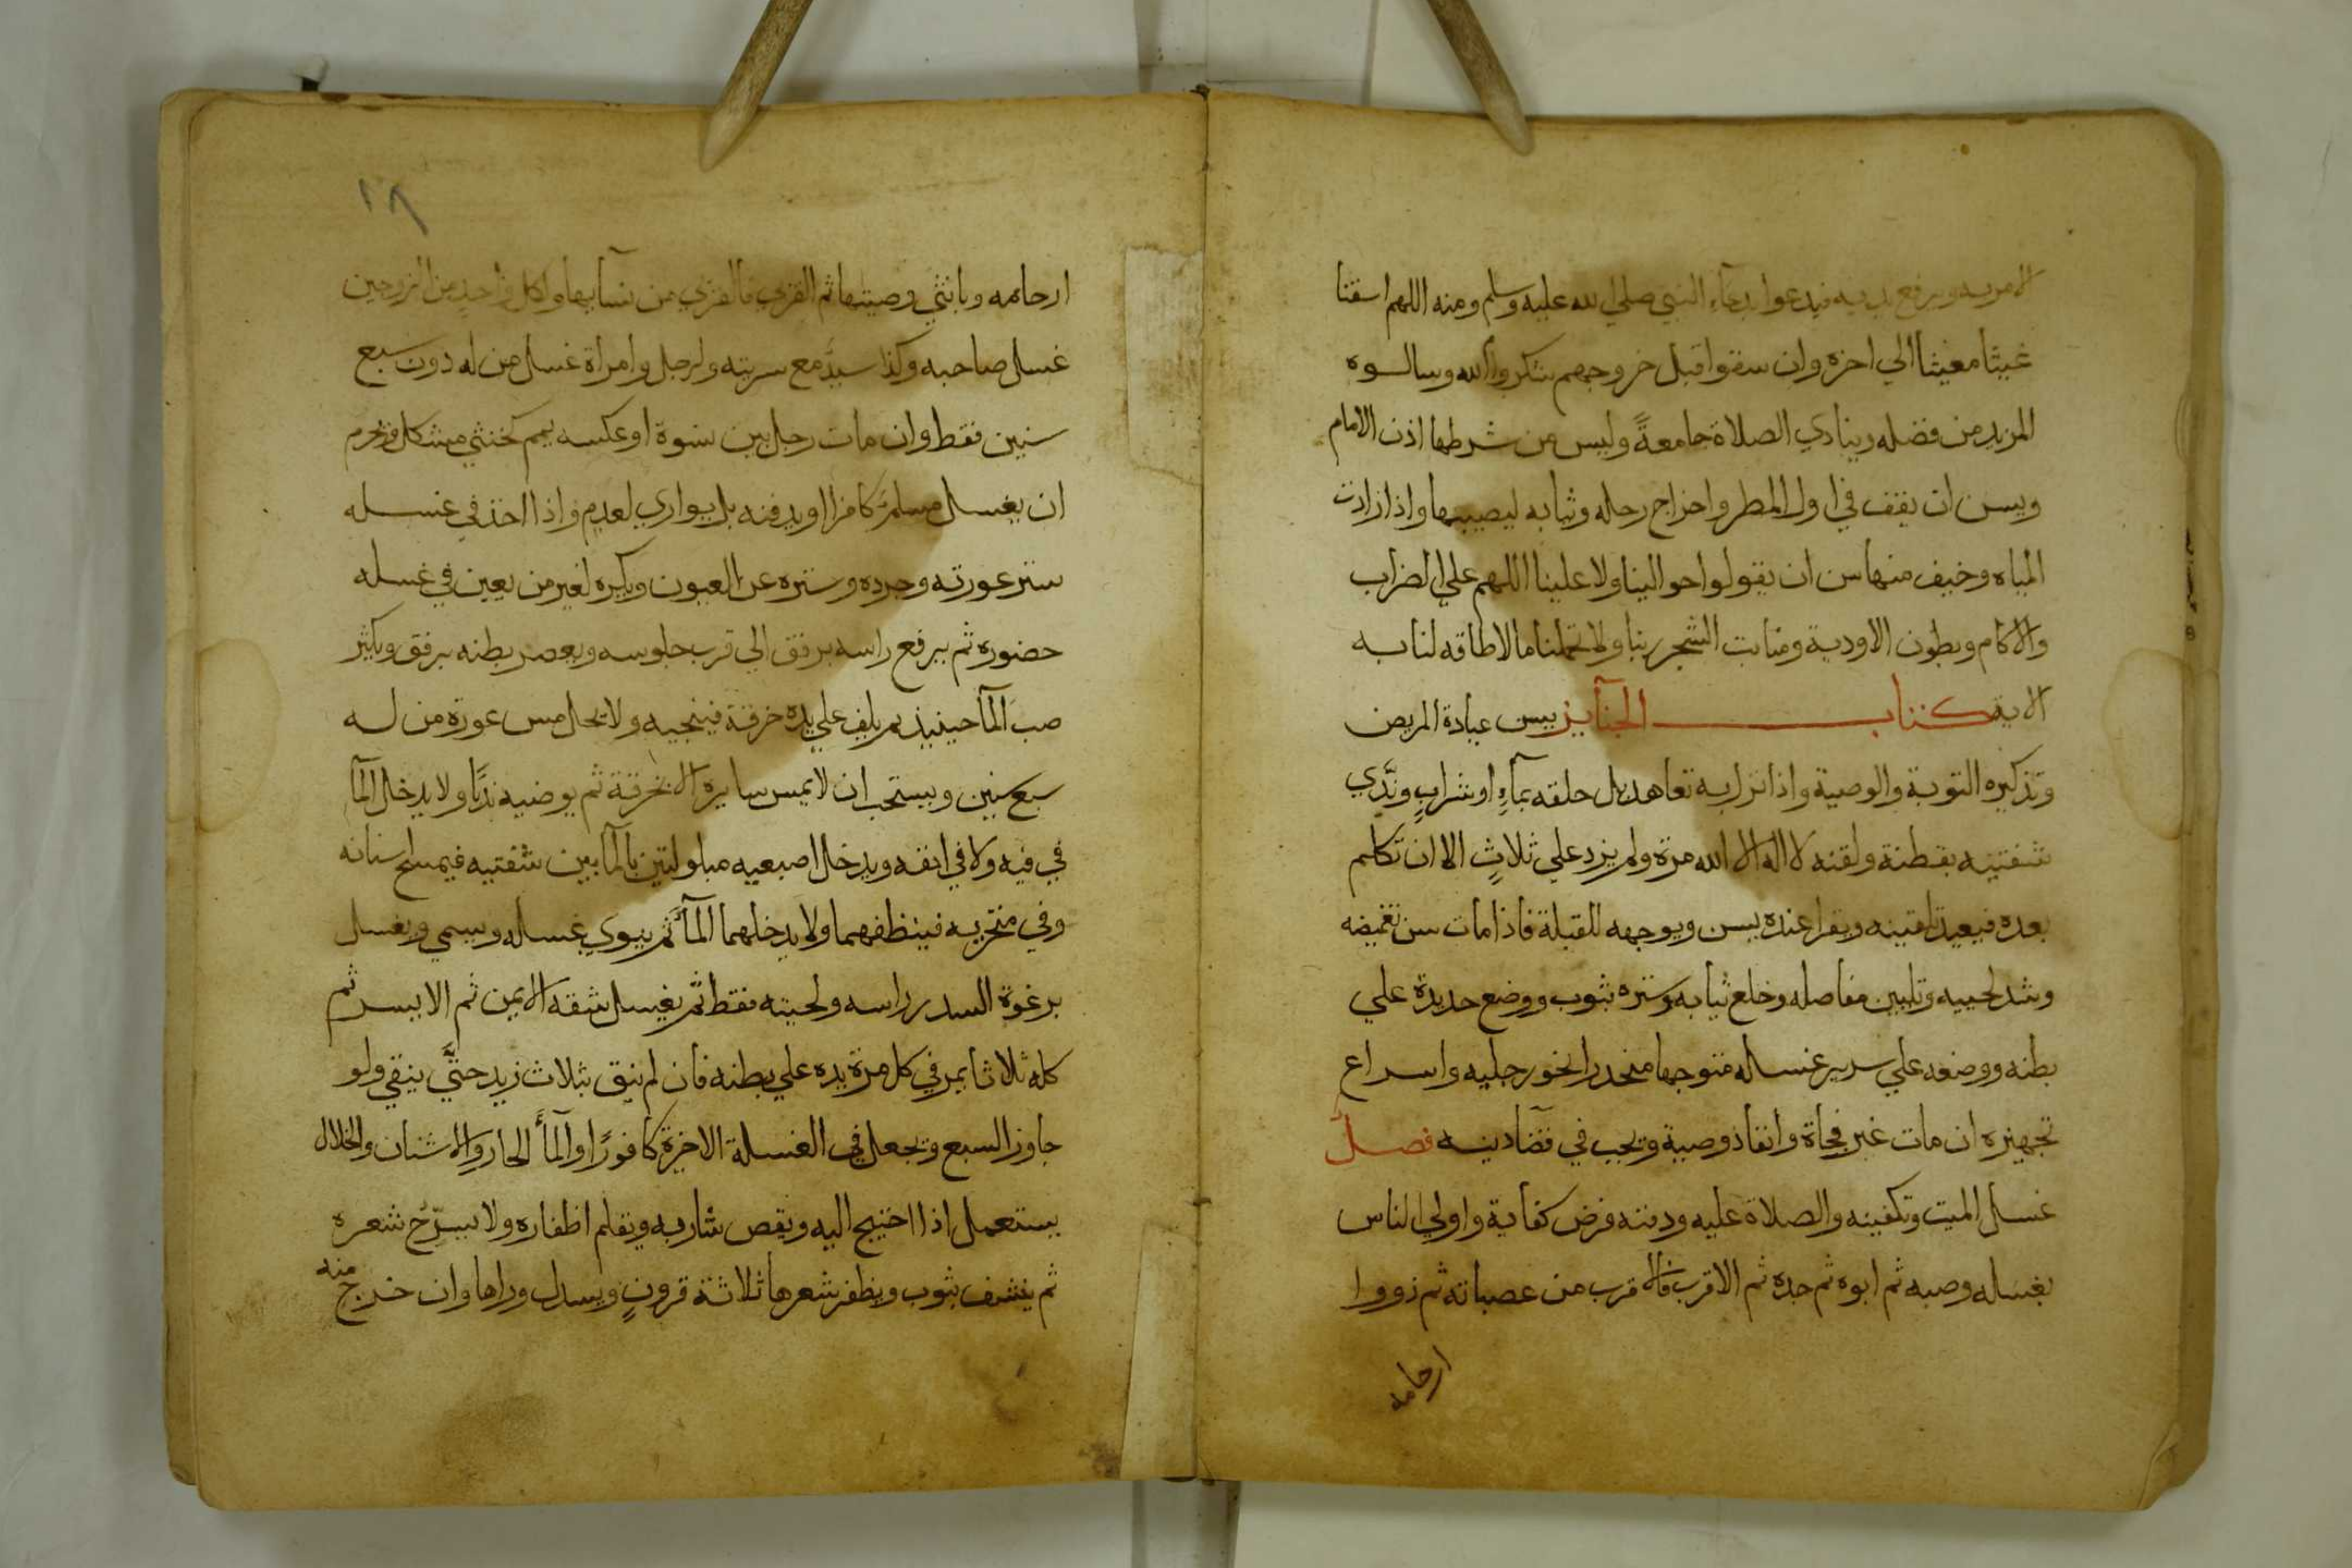 الامر به ويرفع يديه فيدعوا بدعاء النبي صلي الله عليه وسلم ومنه اللهم اسقنا
غيثا مغيثا الي اخره وان سقوا قبل خروجهم شكروا الله وسالوه
المزيد من فضله وينادي الصلاة جامعةً وليس من شرطها اذن الامام
ويسن ان يقف في اول المطر واخراج رحله وثيابه ليصيبها واذا زادت
المياه وخيف منها سن ان يقولوا حوالينا ولا علينا اللهم علي الضراب
والاكام وبطون الاودية ومنابت الشجر ربنا ولا تحملنا ما لا طاقه لنا به
الاية كتاب الجنآيز يسن عيادة المريض
وتذكيره التوبة والوصية واذا نزل به تعاهد بل حلقه بمآءٍ او شرابٍ وندَّي
شفتيه بقطنة ولقنه لا اله الا الله مرة ولم يزد علي ثلاثٍ الا ان تكلم
بعده فيعيد تلقينه ويقرا عنده يس ويوجهه للقبلة فاذا مات سن تغميضه
وشد لحييه وتليين مفاصله وخلع ثيابه وستره بثوب ووضع حديدة علي
بطنه ووضعه علي سرير غسله متوجها منحدرا نحو رجليه واسراع
تجهيزه ان مات غير فجاة وانفاذ وصية ويجب في قضآ دينه فصل
غسل الميت وتكفينه والصلاة عليه ودفنه فرض كفاية واولي الناس
بغسله وصيه ثم ابوه ثم جده ثم الاقرب فالاقرب من عصباته ثم ذووا
ارحامه
١٨
ارحامه وبانثي وصيتها ثم القربي فالقربي من نسآيها ولكل واحدٍ من الزوجين
غسل صاحبه وكذا سيّد مع سريته ولرجل وامراة غسل من له دون سبع
سنين فقط وان مات رجل بين نسوة او عكسه يمم كخنثي مشكل ويحرم
ان يغسل مسلم كافرا او يدفنه بل يواري لعدم واذا اخذ في غسله
ستر عورته وجرده وستره عن العيون ويكره لغير من يعين في غسله
حضوره ثم يرفع راسه برفق الي قرب جلوسه ويعصر بطنه برفق ويكثر
صب المآ حينيذ ثم يلف علي يده خرقة فينجيه ولا يحل مس عورة من له
سبع سنين ويستحب ان لا يمس سايره الا بخرقة ثم يوضيه ندبًا ولا يدخل المآ
في فيه ولا في انفه ويدخل اصبعيه مبلولتين بالمآ بين شفتيه فيمسح اسنانه
وفي منخريه فينظفهما ولا يدخلهما المآ ثم ينوي غسله ويسمي ويغسل
برغوة السدر راسه ولحيته فقط ثم يغسل شقه الايمن ثم الايسر ثم
كله ثلاثا يمر في كل مرة يده علي بطنه فان لم ينق بثلاث زيد حتَّي ينقي ولو
جاوز السبع وتجعل في الغسلة الاخيرة كافورًا والمآ الحار والاشنان والخلال
يستعمل اذا احتيج اليه ويقص شاربه ويقلم اظفاره ولا يسرّح شعره
ثم ينشف بثوب ويظفر شعرها ثلاثة قرونٍ ويسدل وراها وان خرج منه